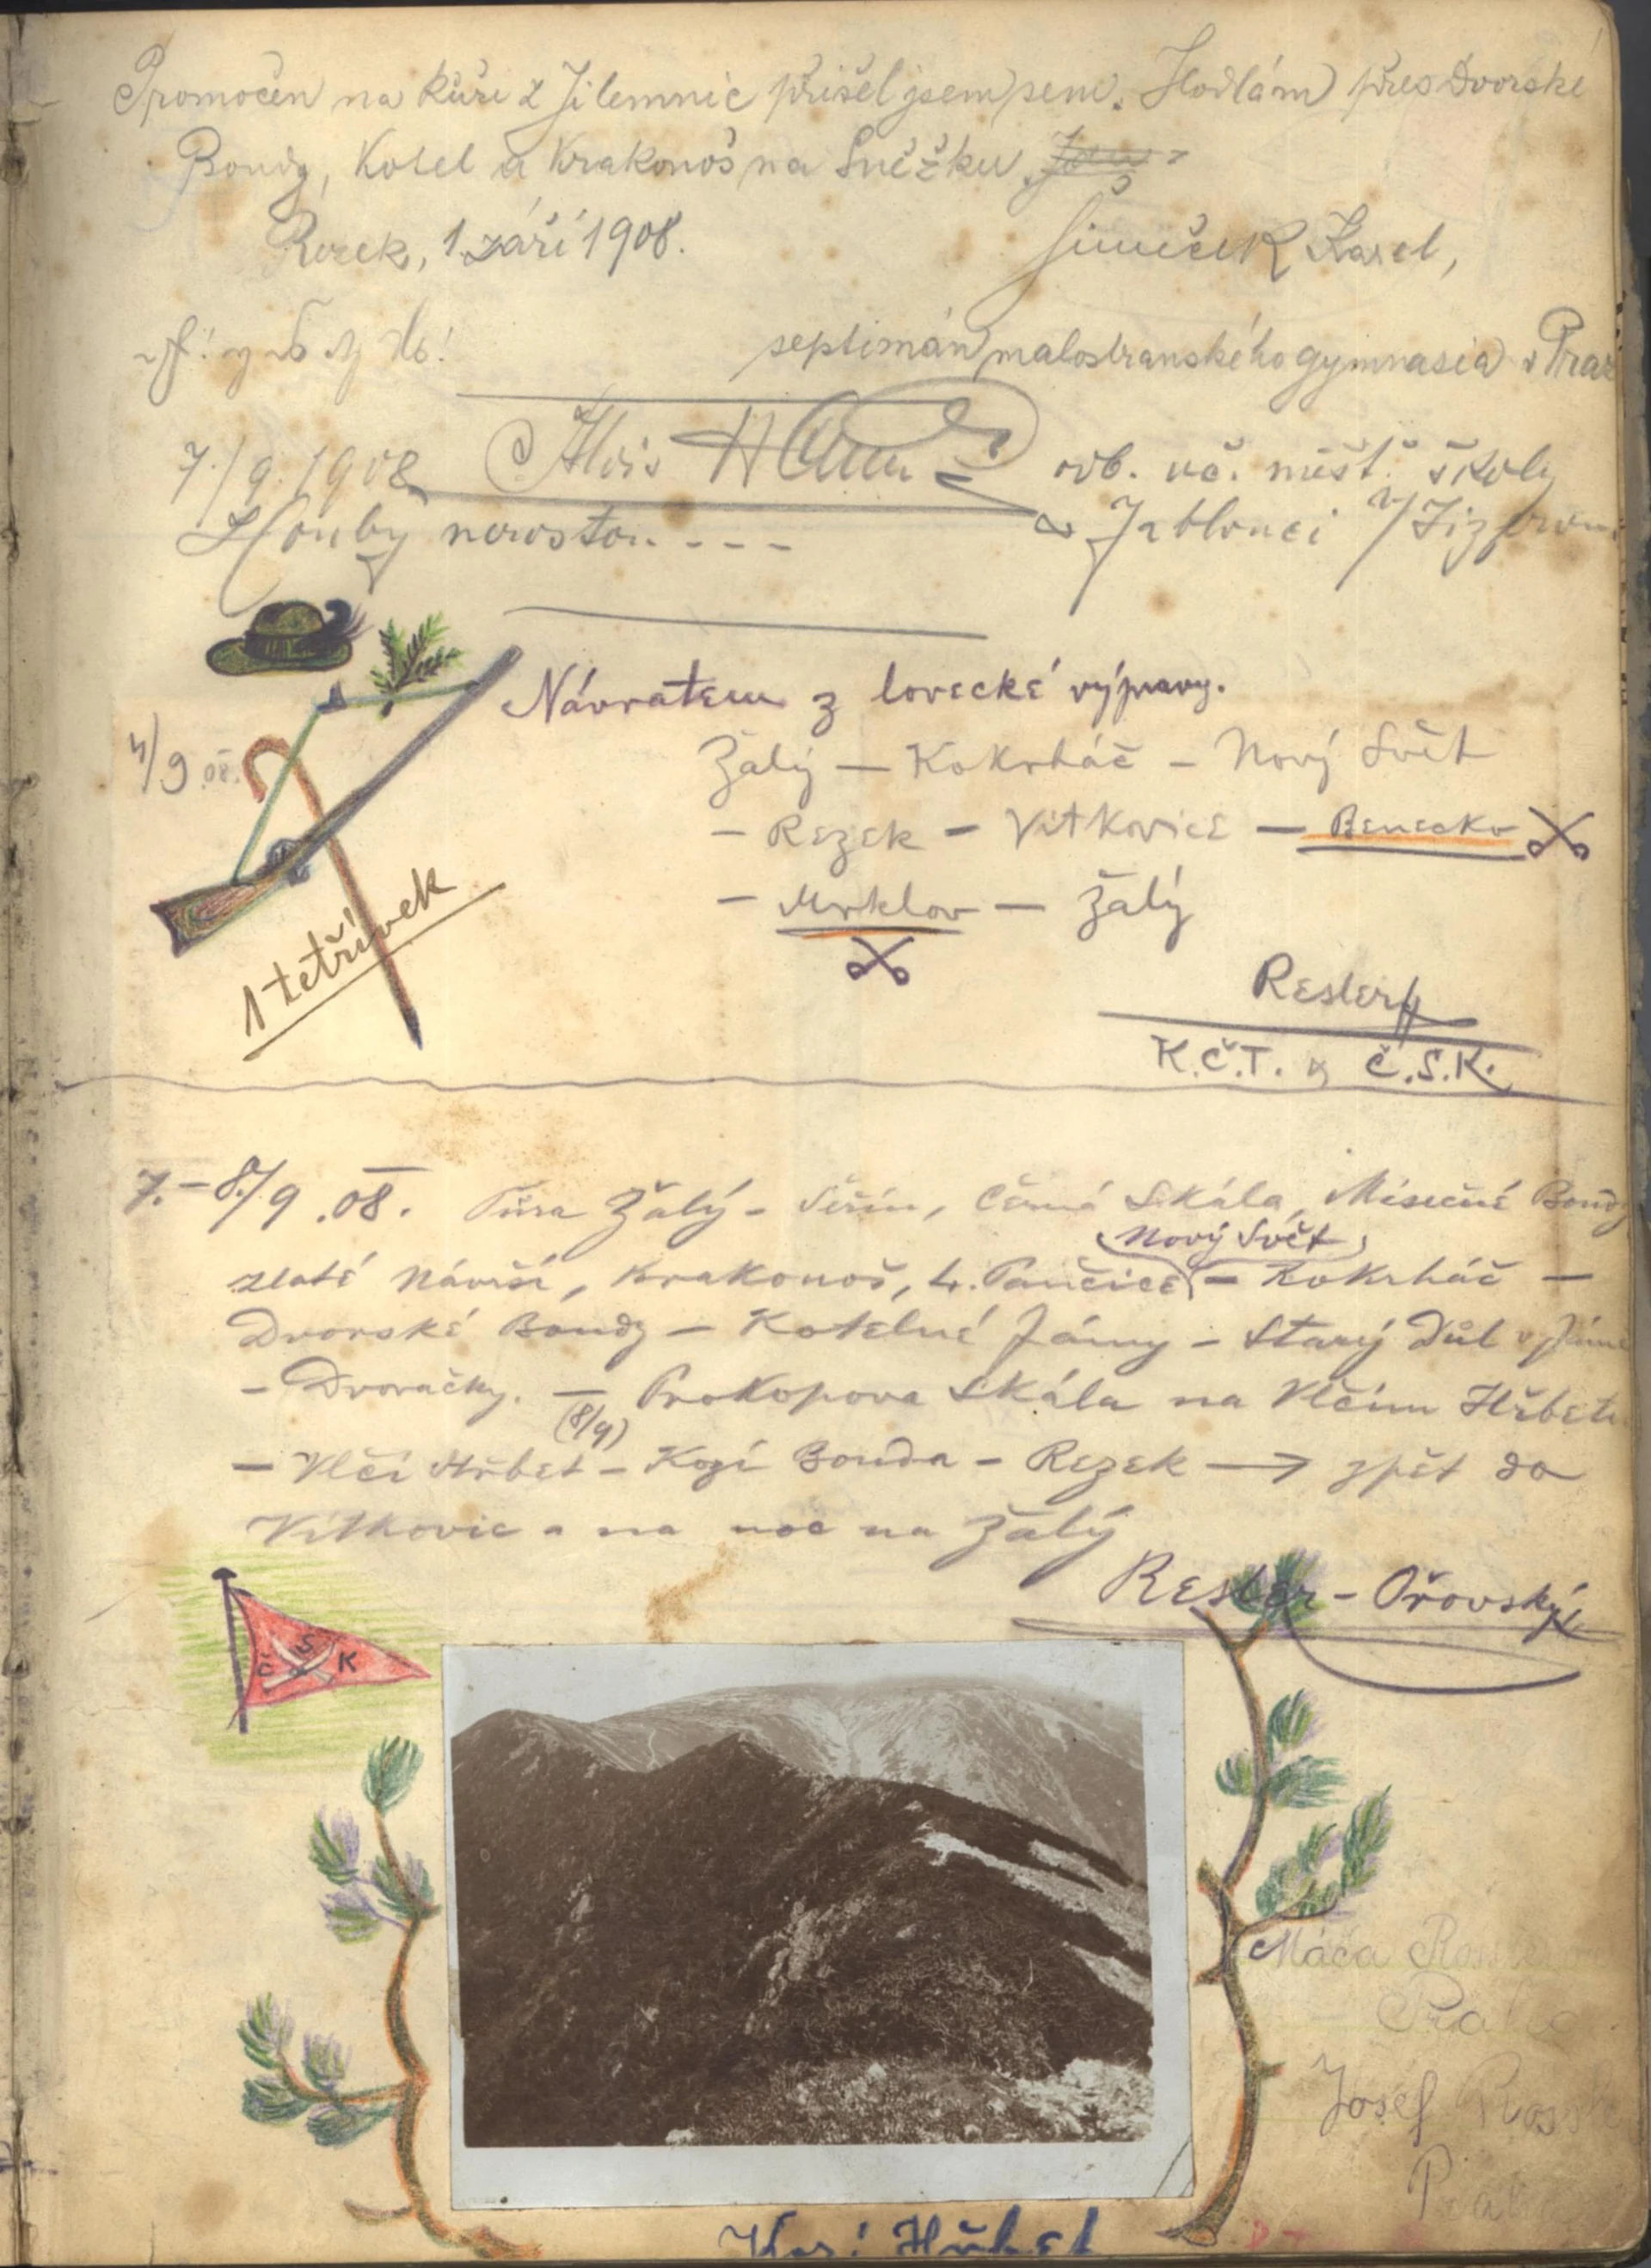 Promočen na kůži z Jilemnic přišel jsem sem. Hodlám přes Dvorské
Boudy, Kotel a Krakonoš na Sněžku
Rezek, 1. září 1908.
Šimeček Karel,
septimán malostranského gymnasia v Praz
7./9. 1908 Alois odb. uč. měšť. školy
v Jablonci n/Jizerou
Houby nerostou. - - -
Návratem z lovecké výpravy.
4/9 08.
Žalý — Kokrháč — Nový Svět
— Rezek — Vítkovice — Benecko
— Mrklov — Žalý
1 tetřívek
Resler
K.Č.T. & Č.S.K.
7.-8./9. 08. Túra Žalý - Šeřín, Černá Skála, Mísečné Boudy
Nový Svět
zlaté Návrší, Krakonoš, L. Pančice — Kokrháč —
Dvorské Boudy — Kotelné Jámy — Starý Důl v Jámě
— Dvoračky. — Prokopova Skála na Vlčím Hřbetu
(8/9)
— Vlčí Hřbet — Kozí Bouda — Rezek → zpět do
Vítkovic a na noc na Žalý
Resler - Ořovský
Č S K
Máca
Praha
Josef
Praha
Kozí Hřbet